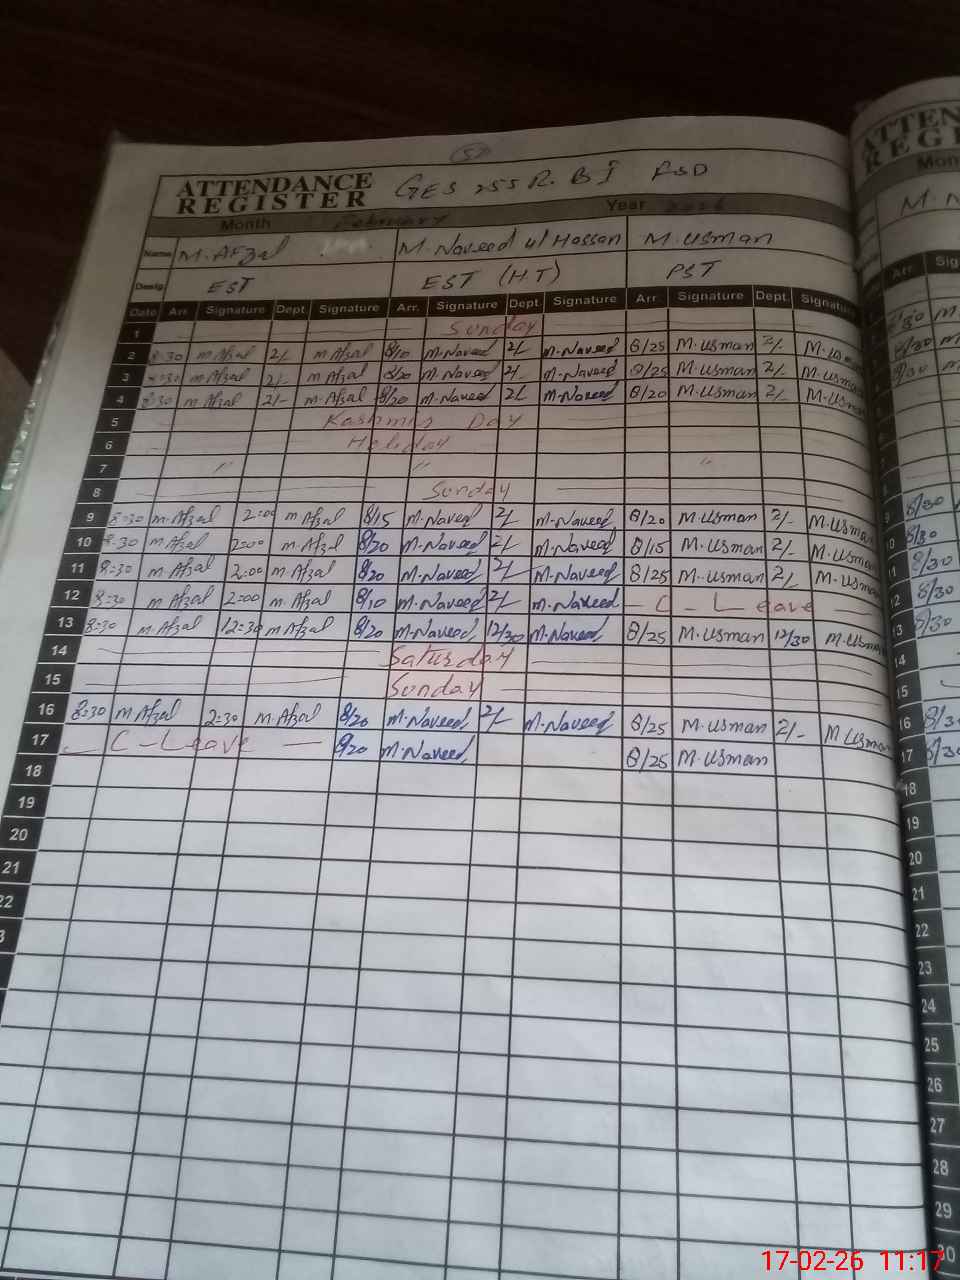 ATTENDANCE REGISTER GES 255 R.B I FSD
Month February Year
Name M.Afzal M.Naveed ul Hassan M.Usman
Desig. EST EST (H.T) PST
Date Arr. Signature Dept. Signature Arr. Signature Dept. Signature Arr. Signature Dept. Signature
1 Sunday
2 8:30 M Afzal 2/- M Afzal 8/10 M.Naveed 2/- M.Naveed 8/25 M.Usman 2/- M.Usman
3 8:30 M Afzal 2/- M Afzal 8/20 M.Naveed 2/- M.Naveed 8/25 M.Usman 2/- M.Usman
4 8:30 M Afzal 2/- M Afzal 8/20 M.Naveed 2/- M.Naveed 8/20 M.Usman 2/- M.Usman
5 Kashmir Day
6 Holiday
7 " " "
8 Sunday
9 8:30 M.Afzal 2:00 M Afzal 8/15 M.Naveed 2/- M.Naveed 8/20 M.Usman 2/- M.Usman
10 8:30 M.Afzal 2:00 M.Afzal 8/20 M.Naveed 2/- M.Naveed 8/15 M.Usman 2/- M.Usman
11 8:30 M Afzal 2:00 M.Afzal 8/20 M.Naveed 2/- M.Naveed 8/25 M.Usman 2/- M.Usman
12 8:30 M Afzal 2:00 M Afzal 8/10 M.Naveed 2/- M.Naveed C - Leave
13 8:30 M Afzal 12:30 M Afzal 8/20 M.Naveed 12/30 M.Naveed 8/25 M.Usman 12/30 M.Usman
14 Saturday
15 Sunday
16 8:30 M Afzal 2:30 M Afzal 8/20 M.Naveed 2/- M.Naveed 8/25 M.Usman 2/- M Usman
17 C - Leave 8/20 M.Naveed 8/25 M.Usman
18
19
20
21
22
3
ATTEN
REGI
Mon
M.N
Arr. Sig
8/30 M
8/30 M
8/30 M
9 8/30
10 8/30
11 8/30
12 8/30
13 8/30
14
15
16 8/30
17 8/30
18
19
20
21
22
23
24
25
26
27
28
29
30
17-02-26 11:17